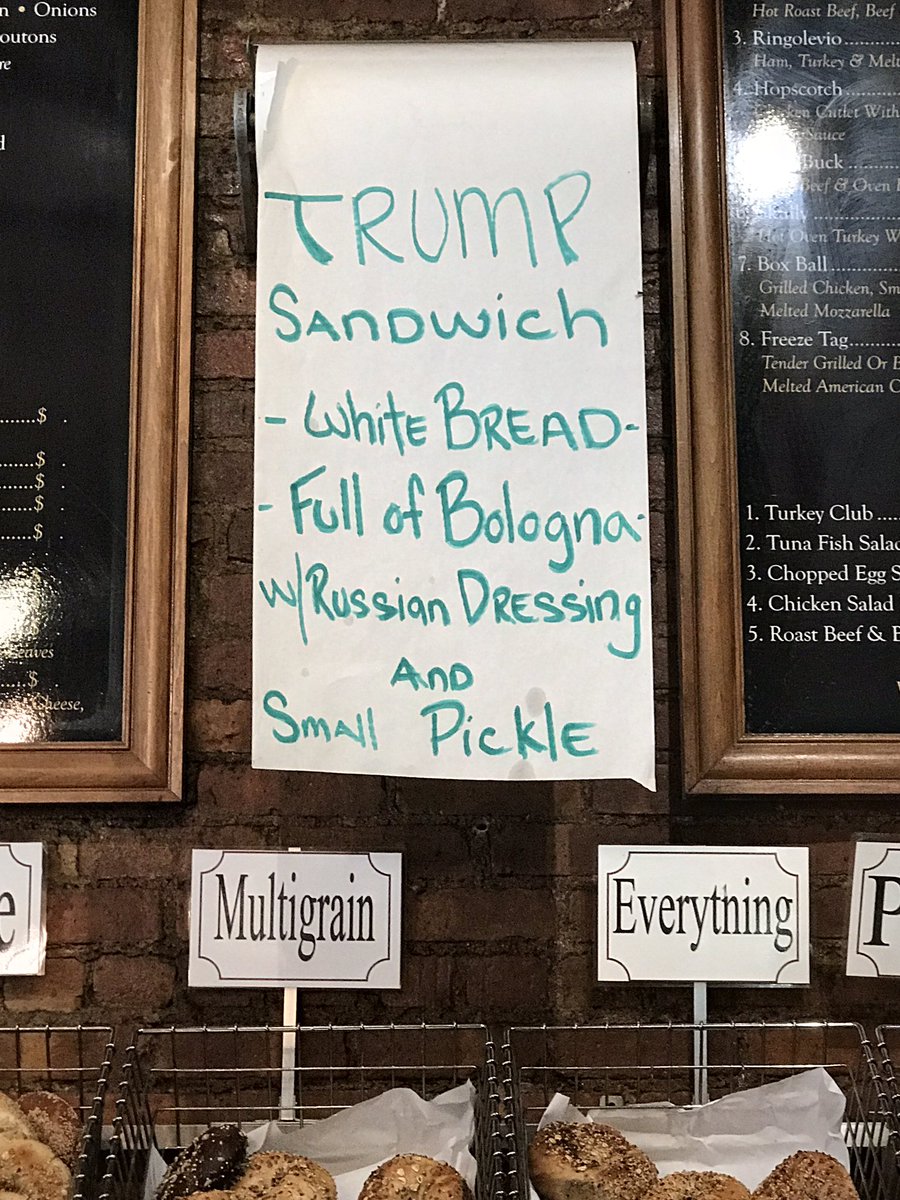 Onions
outons
re
$ .
$ .
$ .
$ .
$ .
Leaves
$
Cheese,
TRUMP
SANDWich
- White BREAD -
- Full of Bologna -
w/ Russian DRessing
AND
Small Pickle
Hot Roast Beef, Beef
3. Ringolevio
Ham, Turkey & Melt
4. Hopscotch
Chicken Cutlet With
Sauce
Buck
Beef & Oven
Hot Oven Turkey W
7. Box Ball
Grilled Chicken, Sm
Melted Mozzarella
8. Freeze Tag
Tender Grilled Or B
Melted American C
1. Turkey Club
2. Tuna Fish Salad
3. Chopped Egg S
4. Chicken Salad
5. Roast Beef & B
e
Multigrain
Everything
P